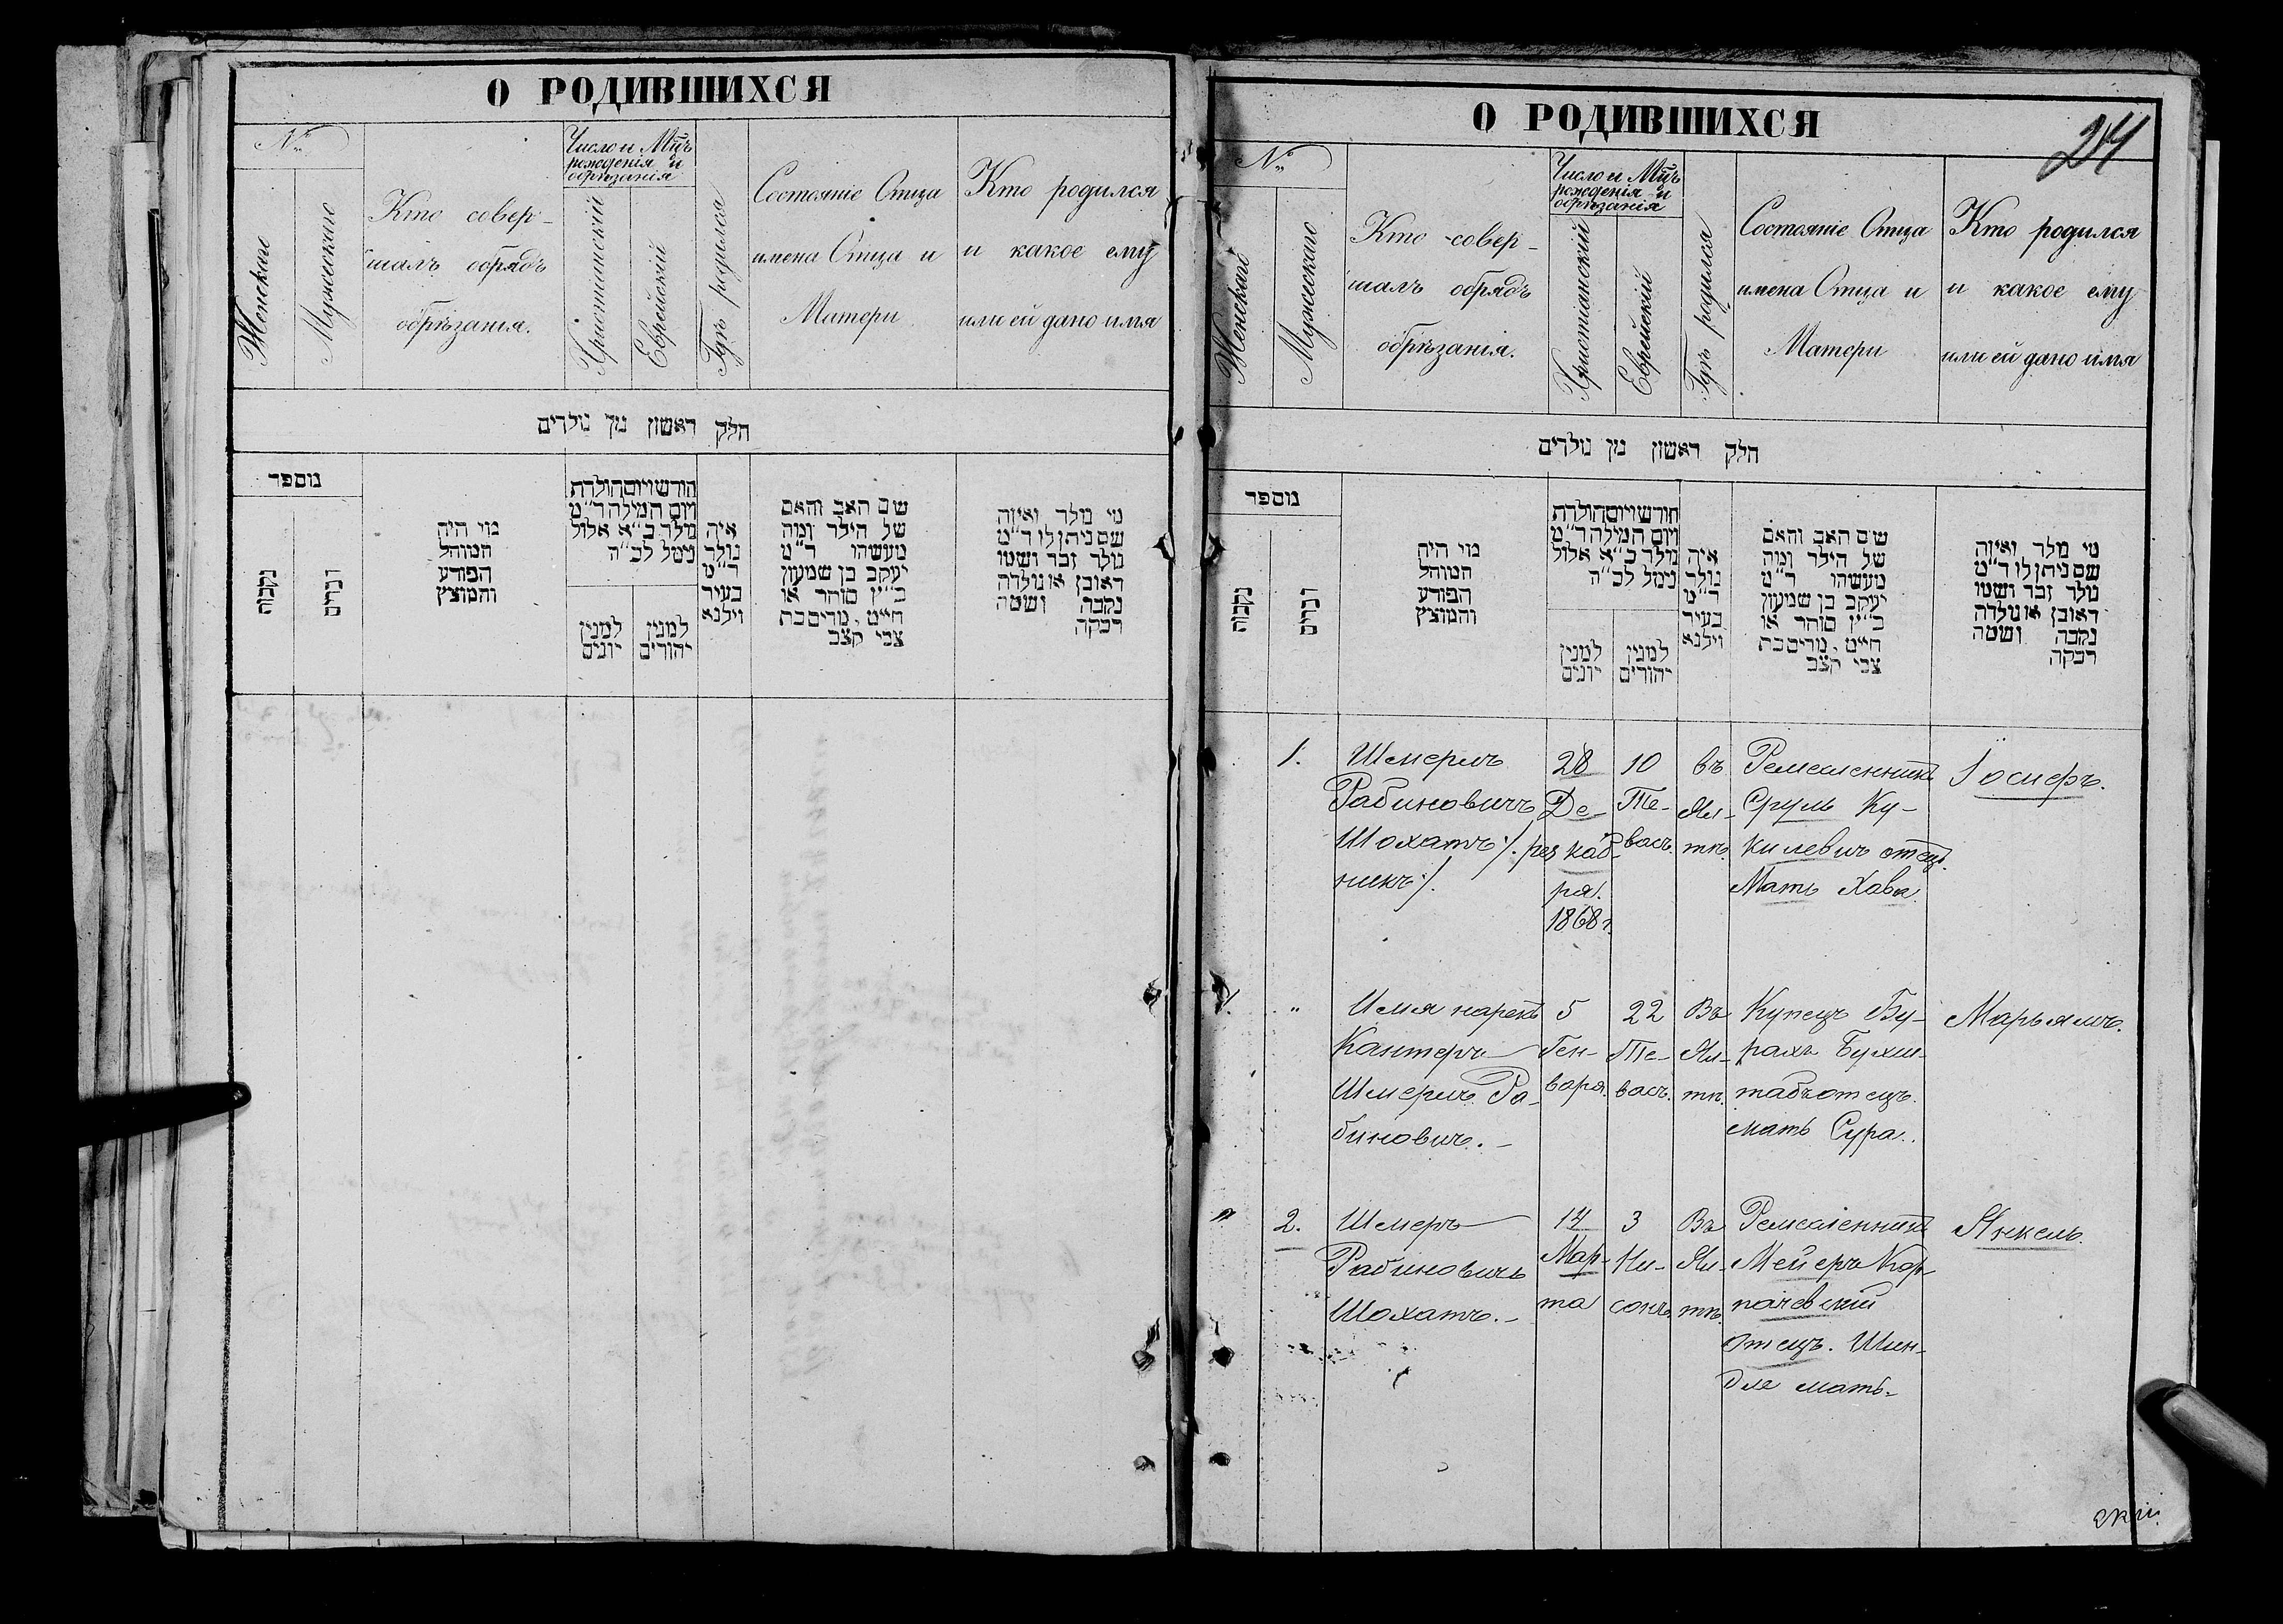 О РОДИВШИХСЯ
№
Женскаго
Мужескаго
Кто совер-
шалъ обрядъ
обрѣзанія.
Число и Мц̃ъ
рожденія и
обрѣзанія
Христіанскій
Еврейскій
Гдѣ родился
Состояніе Отца
имена Отца и
Матери
Кто родился
и какое ему
или ей дано имя
חלק ראשון מן נולדים
מספר
נקבות
זכרים
מי היה
המוהל
הפורע
והמוצץ
חודש ויום הולדת
ויום המילה ד״מ
נולד כ״א אלול
נימל לכ״ה
למנין
יונים
למנין
יהודים
איה
נולד
ד״מ
בעיר
וילנא
שם האב והאם
של הילד ומה
מעשהו ד״מ
יעקב בן שמעון
כ״ץ סוחר או
חייט, מרים בת
צבי קצב
מי נולד ואיזה
שם ניתן לו ד״מ
נולד זכר ושמו
ראובן או נולדה
נקבה ושמה
רבקה
О РОДИВШИХСЯ
24
№
Женскаго
Мужескаго
Кто совер-
шалъ обрядъ
обрѣзанія.
Число и Мц̃ъ
рожденія и
обрѣзанія
Христіанскій
Еврейскій
Гдѣ родился
Состояніе Отца
имена Отца и
Матери
Кто родился
и какое ему
или ей дано имя
חלק ראשון מן נולדים
מספר
נקבות
זכרים
מי היה
המוהל
הפורע
והמוצץ
חודש ויום הולדת
ויום המילה ד״מ
נולד כ״א אלול
נימל לכ״ה
למנין
יונים
למנין
יהודים
איה
נולד
ד״מ
בעיר
וילנא
שם האב והאם
של הילד ומה
מעשהו ד״מ
יעקב בן שמעון
כ״ץ סוחר או
חייט, מרים בת
צבי קצב
מי נולד ואיזה
שם ניתן לו ד״מ
נולד זכר ושמו
ראובן או נולדה
נקבה ושמה
רבקה
1.
Шмерлъ
Рабиновичъ
Шохатъ /. рез
никъ /.
28
Де-
каб-
ря.
1868 г.
10
Те-
васъ.
въ
Ял-
тѣ.
Ремесленникъ
Сруль Ку-
килевич отец.
Мать Хава.
Іосифъ.
1.
"
Имя нарекъ
Канторъ
Шмерлъ Ра-
бинович. -
5
Ген-
варя.
22
Те-
васъ.
Въ
Ял-
тѣ.
Купецъ Бу-
рахъ Бухш-
табъ отецъ.
мать Сура.
Марьямъ.
"
2.
Шмеръ
Рабиновичъ
Шохатъ. -
14
Мар-
та
3
Ни-
сонъ.
Въ
Ял-
тѣ.
Ремесленникъ
Мейеръ Кор-
пачевский
отецъ. Шин-
дле мать.
Янкель.